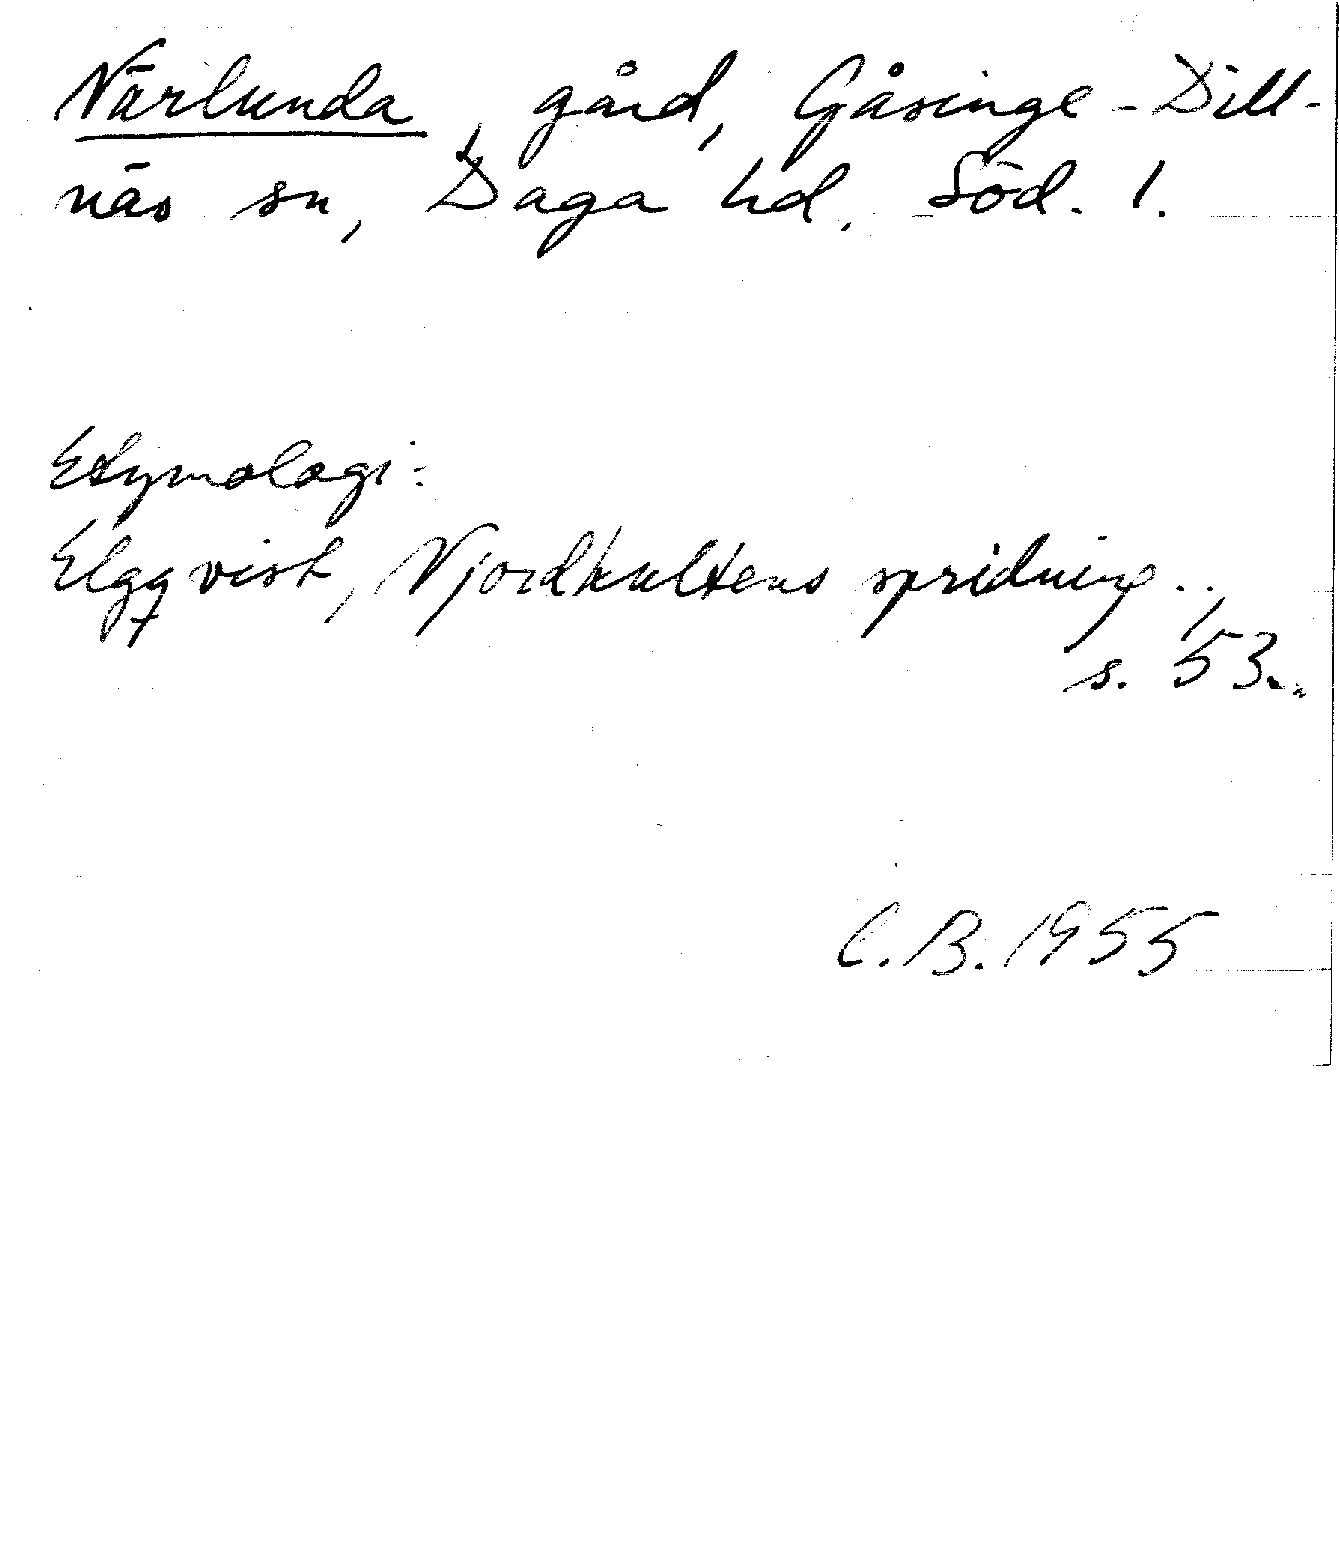 Närlunda, gård, Gåsinge-Dill-
näs sn, Daga hd. Söd. l.
Etymologi:
Elgqvist, Njordkultens spridning..,
s. 53..
C.B. 1955